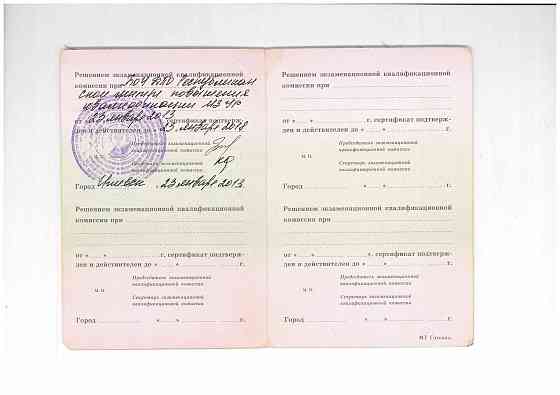 Решением экзаменационной квалификационной
комиссии при ПОУ ДПО Республикан
ский центр повышения
квалификации МЗ УР
от «23» января 2013 г. сертификат подтверж-
ден и действителен до «23» января 2018
Председатель экзаменационной
квалификационной комиссии
Секретарь экзаменационной
квалификационной комиссии
Город Ижевск, 23 января 2013
Решением экзаменационной квалификационной
комиссии при
от «  »  г. сертификат подтверж-
ден и действителен до «  »  г.
Председатель экзаменационной
квалификационной комиссии
М.П.
Секретарь экзаменационной
квалификационной комиссии
Город  «  »  г.
Решением экзаменационной квалификационной
комиссии при
от «  »  г., сертификат подтверж-
ден и действителен до «  »  г.
Председатель экзаменационной
квалификационной комиссии
М.П.
Секретарь экзаменационной
квалификационной комиссии
Город  «  »  г.
Решением экзаменационной квалификационной
комиссии при
от «  »  г. сертификат подтверж-
ден и действителен до «  »  г.
Председатель экзаменационной
квалификационной комиссии
М.П.
Секретарь экзаменационной
квалификационной комиссии
Город  «  »  г.
МТ Гознака.